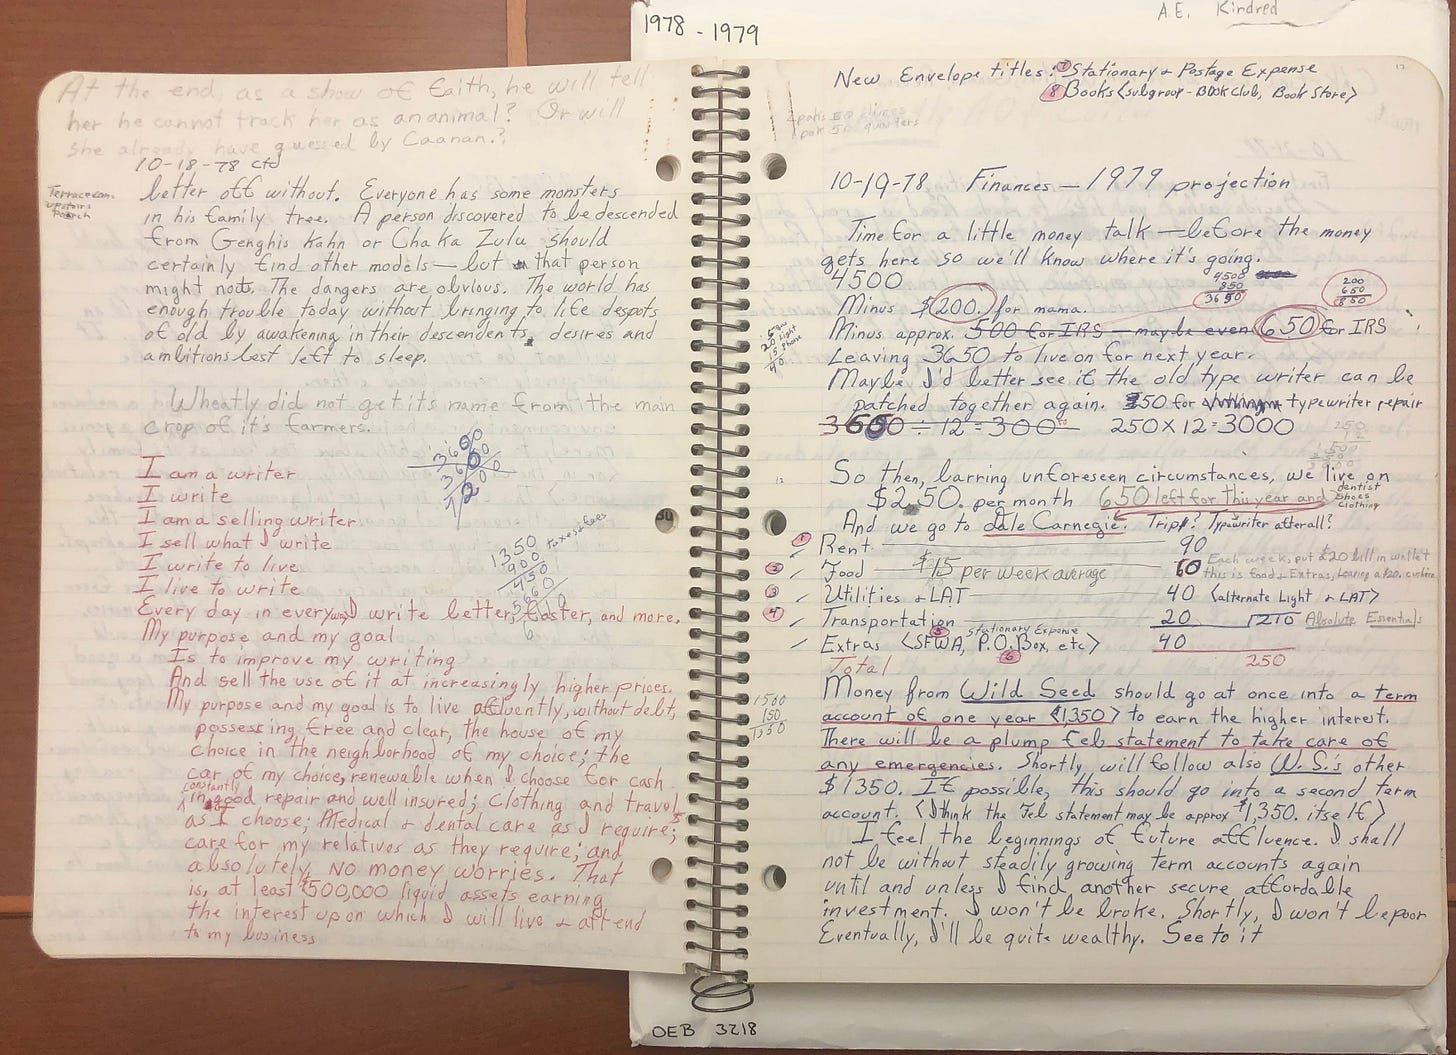 1978 - 1979
A.E. Kindred
At the end, as a show of faith, he will tell
her he cannot track her as an animal? Or will
she already have guessed by Caanan.?
10-18-78 ctd
Terrace com.
upstairs
Porch
better off without. Everyone has some monsters
in his family tree. A person discovered to be descended
from Genghis Kahn or Chaka Zulu should
certainly find other models — but that person
might not. The dangers are obvious. The world has
enough trouble today without bringing to life despots
of old by awakening in their descendents, desires and
ambitions best left to sleep.
Wheatly did not get its name from the main
crop of it's farmers.
3600
3600
7200
I am a writer
I write
I am a selling writer
I sell what I write
I write to live
I live to write
1350
900
450
taxes & fees
Every day in every way I write better, faster, and more.
My purpose and my goal
Is to improve my writing
And sell the use of it at increasingly higher prices.
My purpose and my goal is to live affluently, without debt,
possessing, free and clear, the house of my
choice in the neighborhood of my choice; the
car of my choice, renewable when I choose for cash
constantly
in good repair and well insured; Clothing and travel
as I choose; Medical & dental care as I require;
care for my relatives as they require; and
absolutely NO money worries. That
is, at least $500,000 liquid assets earning
the interest upon which I will live & attend
to my business
New Envelope titles: 7 Stationary & Postage Expense
8 Books <subgroup - Book Club, Book Store>
50 dimes
50 quarters
10-19-78 Finances — 1979 projection
Time for a little money talk — before the money
gets here so we'll know where it's going.
4500
4500
850
3650
200
650
850
Minus $200. for mama.
Minus approx. 500 for IRS — maybe even 650 for IRS
20 Light
15 Phone
40
Leaving 3650 to live on for next year.
Maybe I'd better see if the old type writer can be
patched together again. 50 for typewriter repair
3600 ÷ 12 = 300 250 X 12 = 3000
So then, barring unforeseen circumstances, we live on
$2,50. per month 650 left for this year and dentist
shoes
clothing
And we go to dale Carnegie. Trip? Typewriter afterall?
1 Rent 90
2 Food $15 per week average 60
Each week, put $20 bill in wallet
this is food & Extras, leaving a $20. cushion
3 Utilities & LAT 40 <alternate Light & LAT>
4 Transportation 20 1210 Absolute Essentials
5 Stationary Expense
Extras <SFWA, P.O. Box, etc> 40
6
Total 250
Money from Wild Seed should go at once into a term
1500
150
1350
account of one year <1350> to earn the higher interest.
There will be a plump Feb statement to take care of
any emergencies. Shortly will follow also W. S.'s other
$1350. If possible, this should go into a second term
account. <I think the Feb statement may be approx $1,350. itself>
I feel the beginnings of future affluence. I shall
not be without steadily growing term accounts again
until and unless I find another secure affordable
investment. I won't be broke. Shortly, I won't be poor
Eventually, I'll be quite wealthy. See to it
OEB 3218